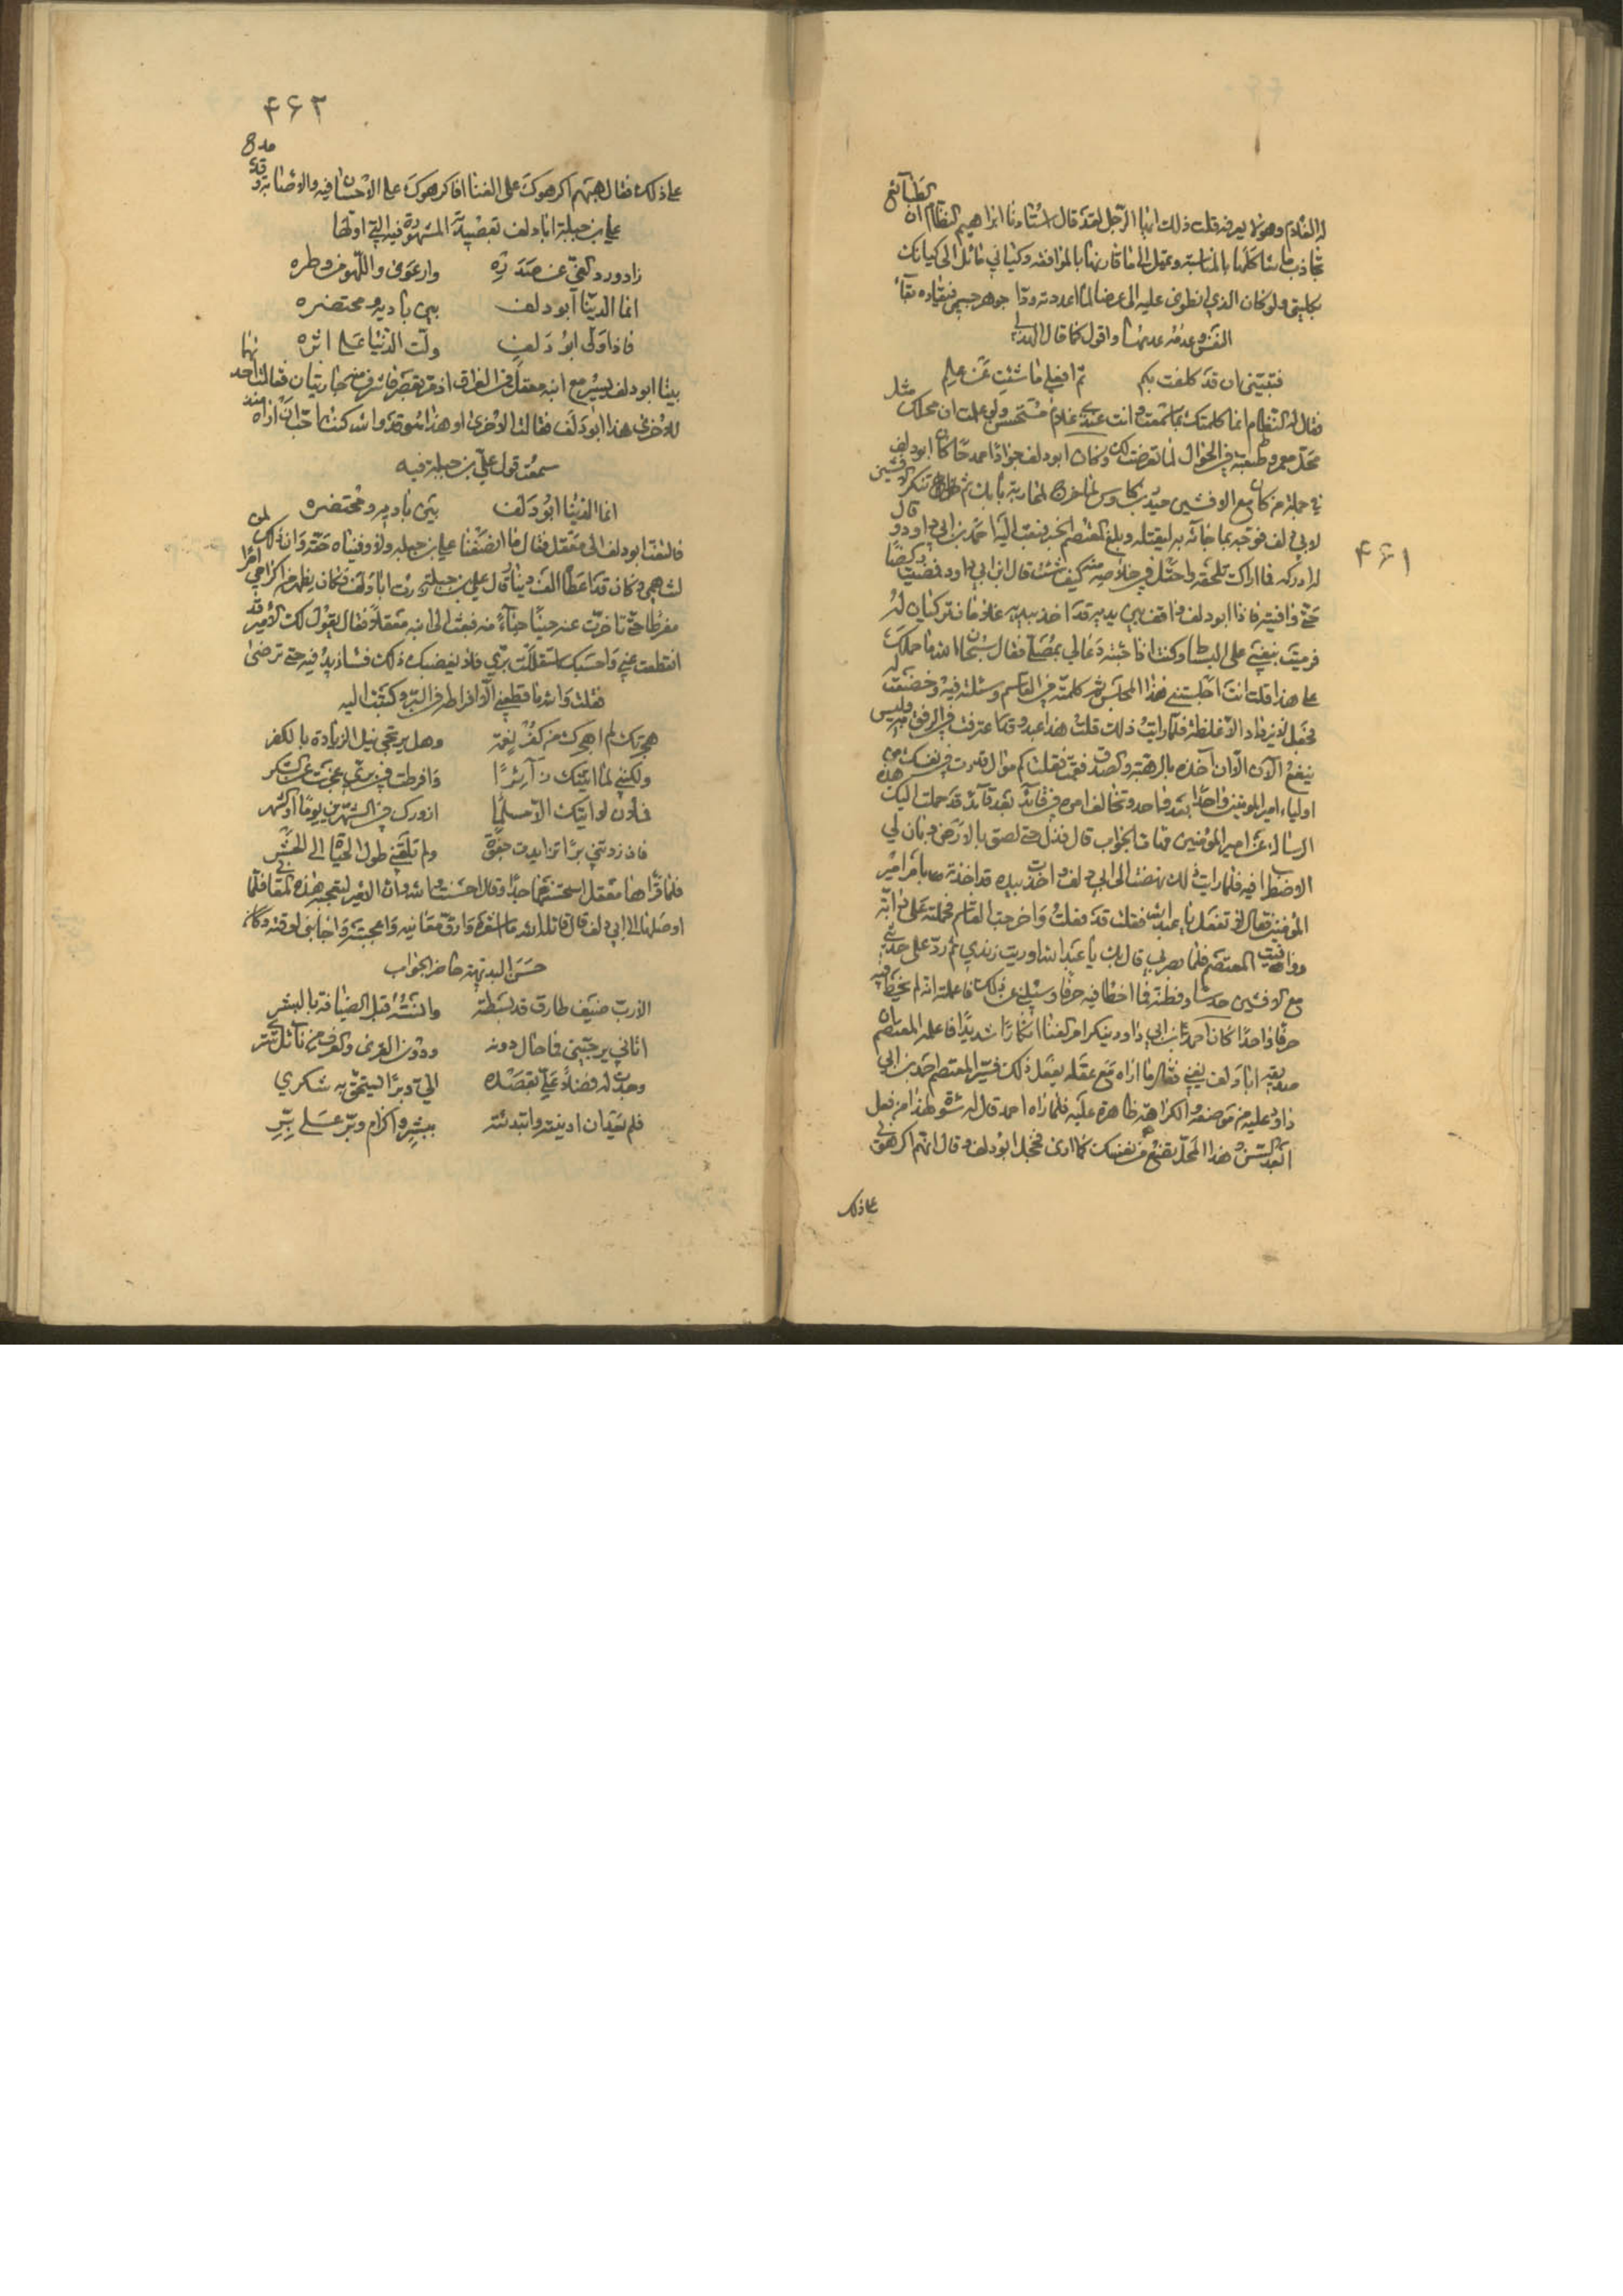 ۴۶۱
له الغلام وهو لا يعرفه قلت ذلك ايها الرجل لقد قال استاذنا ابراهيم النظام ان الطبائع
تجاذب ما شاكلها بالمناسبة وتميل الى ما قاربها بالموافقة وكياني مائل الى كيانك
بكليتي ولو كان الذي انطوى عليه الى عرضا لما اعددته ودا جوهر جسمي فبقاده بقآء
النفس وعدمه عدمها واقول كما قال الهذلي
فتيقني ان قد كلفت بكم ثم افعلي ما شئت عن علم
فقال له النظام انما كلمتك بما سمعت وانت عندي غلام مستحسن ولو علمت ان محلك مثل
محل معمر وطبقته في الجدال لما تعرضت لك وكان ابو دلف جوادا ممدحا كان ابو دلف
في جملة من كان مع الافشين حيدر بن كاوس لما خرج لمحاربة بابك ثم تنكر الافشين
لابي دلف فوجه بما جائه به ليقتله وبلغ المعتصم الخبر فبعث اليه احمد بن ابي داود و قال
له ادركه فما اراك تلحقه واحتل في خلاصه منه كيف شئت قال ابن ابي داود فمضيت ركضا
حتى وافيته فاذا ابو دلف واقف بين يديه قد اخذ بيديه غلامان تركيان له
فرميت بنفسي على البساط وكنت اذا جئته دعا لي بمصلى فقال سبحان الله ما حملك
على هذا قلت انت اجلستني هذا المجلس ثم كلمته في القاسم وسئلته فيه وخضعت له
فجعل لا يزداد الا غلظة فلما رايت ذلك قلت هذا عبد وقد اعترفت في الرفق به وليس
ينفع الآن الا ان آخذه بالرهبة والصدق فقمت فقلت كم تقدرت في نفسك من
اولياء امير المؤمنين واحدا بعد واحد وتخالف امره في قائد بعد قائد قد حملت اليك هذه
الرسالة عن امير المؤمنين فهات الجواب قال فذل حتى لصق بالارض وبان لي
الاضطراب فيه فلما رايت ذلك نهضت الى ابي دلف واخذت بيده قد اخذته بامر امير
المؤمنين فقال لا تفعل يا ابا عبد الله فقلت قد فعلت واخرجت القاسم فحملته على دابة
ووافيت المعتصم فلما بصر بي قال بك يا عبد الله اوريت زندي ثم رد علي حديثي
مع الافشين حدسا وظنه فما اخطأ فيه حرفا وسئلني عن ذلك فاعلمته انه لم يخط فيه
حرفا واحدا كان احمد بن ابي داود ينكر امر الغناء انكارا شديدا فاعلمه المعتصم ان
صديقه ابا دلف يغني فقال ما اراه مع عقله يفعل ذلك فستر المعتصم احمد بن ابي
داود عليه من موضعه والكراهة ظاهرة عليه فلما راه احمد قال له سوءة لهذا من فعل
ابعد السن وهذا المحل تضع من نفسك كما ارى فخجل ابو دلف وقال انهم اكرهوني
على ذلك
۴۶۲
على ذلك فقال هبهم اكرهوك على الغناء افاكرهوك على الاحسان فيه والاصابة وقد مدح
علي بن جبلة ابا دلف بقصيدته المشهورة فيه التي اولها
زاد ورد الغي عن صدره وارعوى واللهو من وطره
انما الدنيا ابو دلف بين باديه ومحتضره
فاذا ولى ابو دلف ولت الدنيا على اثره
بينا ابو دلف يسير مع اخيه معقل في العراق اذ مر بقصر فاشرف منه جاريتان فقالت احديهما
للاخرى هذا ابو دلف فقالت الاخرى او هذا هو قد والله كنت احب ان اراه منذ
سمعت قول علي بن جبلة فيه
انما الدنيا ابو دلف بين باديه ومحتضره
فالتفت ابو دلف الى معقل فقال ما انصفنا علي بن جبلة ولا وفيناه حقه وان ذلك لمن
لشاهمي وكان قد اعطاه الف دينار قال علي بن جبلة زرت ابا دلف فكان يظهر من اكرامي امرا
مفرطا حتى تاخرت عنه حينا حياء منه فبعث الي اخيه معقلا فقال يقول لك الامير قد
انقطعت عني واحسبك استقللت بري فلا يغضبك ذلك فسازيد فيه حتى ترضى
فقلت والله ما قطعني الا افراطه في البر وكتبت اليه
هجرتك لم اهجرك من كفر نعمة وهل يرتجى نيل الزيادة بالكفر
ولكنني لما اتيتك زآئرا وافرطت في بري عجزت عن الشكر
فالان لا اتيك الا مسلما ازورك في الشهرين يوما او الشهر
فان زدتني برا تزايدت جفوة ولم تلقني طول الحياة الى الحشر
فلما قراها معقل استحسنها جدا وقال احسنت والله اما ان الامير لتعجبه هذه المعاني فلما
اوصلها الى ابي دلف قال قاتله الله ما اشعره وارق معانيه واعجبته واجابني لوقته وكان
حسن البديهة حاضر الجواب
الا رب ضيف طارق قد بسطته وانسته قبل الضيافة بالبشر
اتاني يرجيني فما حال دونه ودون القرى والعرف من نائلي ستر
وجدت له فضلا علي بقصده الي وبرا يستحق به شكري
فلم يعد ان ادنيته وابتدئته ببشر واكرام وبر على بر